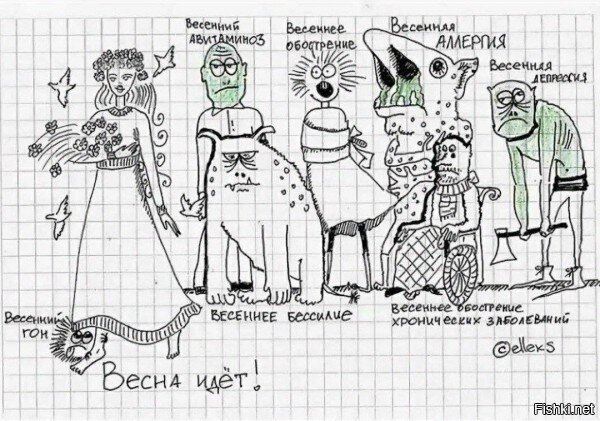 Весенний
АВИТАМИНОЗ
Весеннее
обострение
Весенная
АЛЛЕРГИЯ
Весенная
ДЕПРЕССИЯ
Весенний
гон
Весеннее бессилие
Весеннее обострение
хронических заболеваний
©elleks
Весна идёт!
Fishki.net